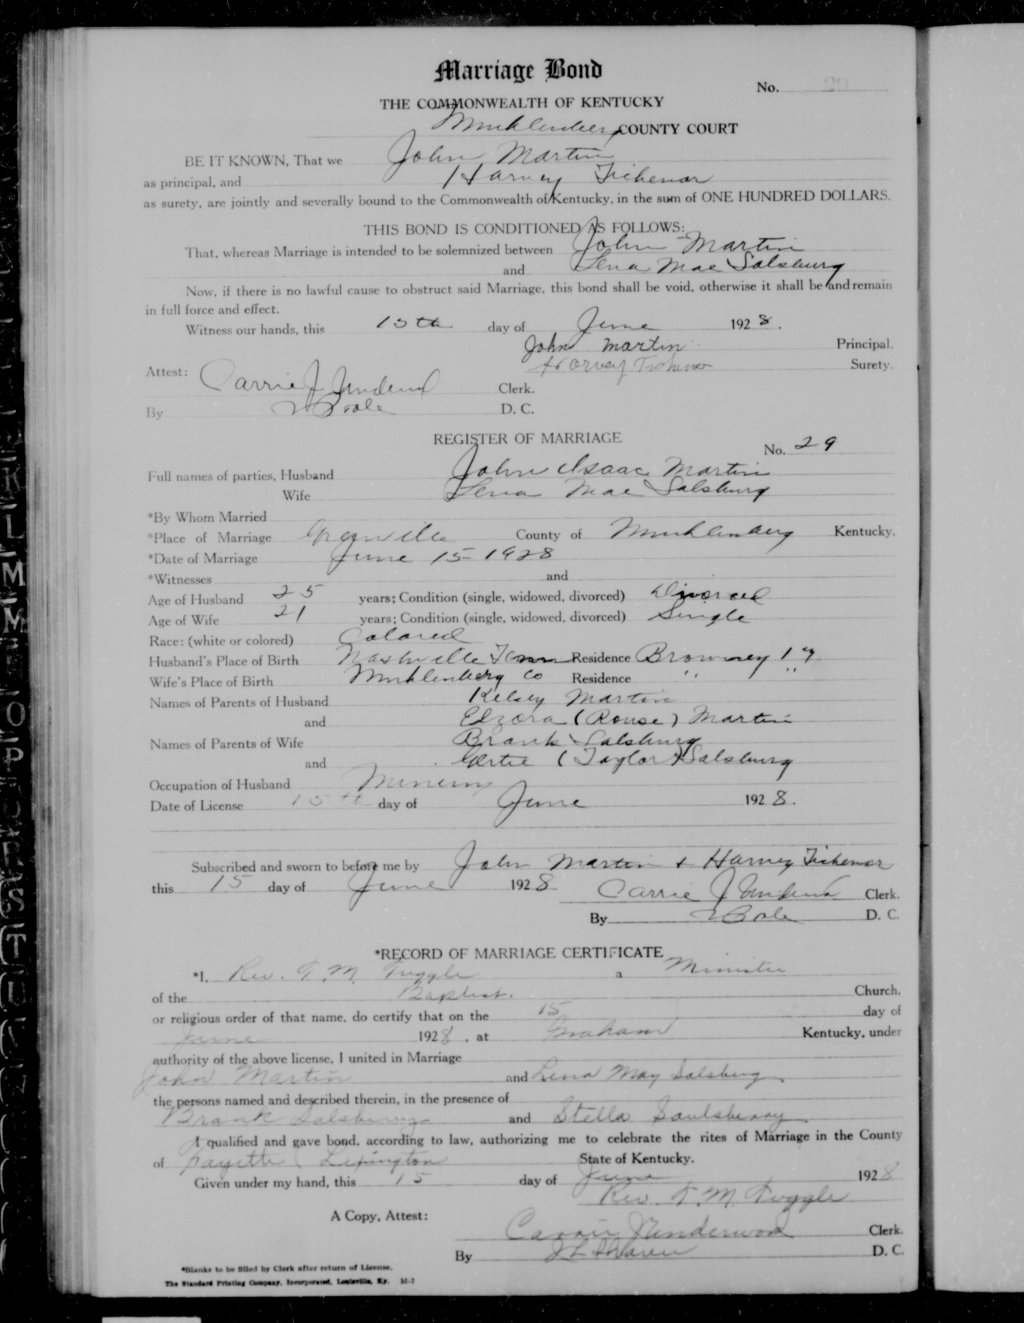 Marriage Bond
No.
THE COMMONWEALTH OF KENTUCKY
Muhlenberg COUNTY COURT
BE IT KNOWN, That we John Martin
as principal, and Harvey Tichenor
as surety, are jointly and severally bound to the Commonwealth of Kentucky, in the sum of ONE HUNDRED DOLLARS.
THIS BOND IS CONDITIONED AS FOLLOWS:
That, whereas Marriage is intended to be solemnized between John Martin
and Lena Mae Salsburg
Now, if there is no lawful cause to obstruct said Marriage, this bond shall be void, otherwise it shall be and remain
in full force and effect.
Witness our hands, this 15th day of June 1928.
John Martin Principal.
Attest: Harvey Tichenor Surety.
Carrie J Underwood Clerk.
By D. C.
REGISTER OF MARRIAGE
No. 29
Full names of parties, Husband John Isaac Martin
Wife Lena Mae Salsburg
*By Whom Married
*Place of Marriage Greenville County of Muhlenberg Kentucky.
*Date of Marriage June 15 1928
*Witnesses and
Age of Husband 25 years; Condition (single, widowed, divorced) Divorced
Age of Wife 21 years; Condition (single, widowed, divorced) Single
Race: (white or colored) Colored
Husband's Place of Birth Nashville Tenn Residence Browney Ky
Wife's Place of Birth Muhlenberg Co Residence " "
Names of Parents of Husband Kelsey Martin
and Elzora (Rouse) Martin
Names of Parents of Wife Brank Salsburg
and Gertie (Taylor) Salsburg
Occupation of Husband Mining
Date of License 15th day of June 1928.
Subscribed and sworn to before me by John Martin + Harvey Tichenor
this 15 day of June 1928 Carrie J Underwood Clerk.
By D. C.
*RECORD OF MARRIAGE CERTIFICATE
*I, Rev. T. M. Tuggle a Minister
of the Baptist. Church,
or religious order of that name, do certify that on the 15 day of
June 1928, at Graham Kentucky, under
authority of the above license, I united in Marriage
John Martin and Lena May Salsburg
the persons named and described therein, in the presence of
Brank Salsburg and Stella Saulsberry
I qualified and gave bond, according to law, authorizing me to celebrate the rites of Marriage in the County
of Fayette Lexington State of Kentucky.
Given under my hand, this 15 day of June 1928
Rev. T. M. Tuggle
A Copy, Attest:
Carrie J Underwood Clerk.
By D. C.
*Blanks to be filled by Clerk after return of License.
The Standard Printing Company, Incorporated, Louisville, Ky. M-2